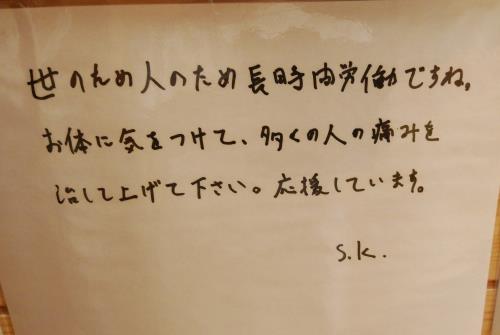 世のため人のため長時間労働ですね。
お体に気をつけて、多くの人の痛みを
治して上げて下さい。応援しています。
S.K.